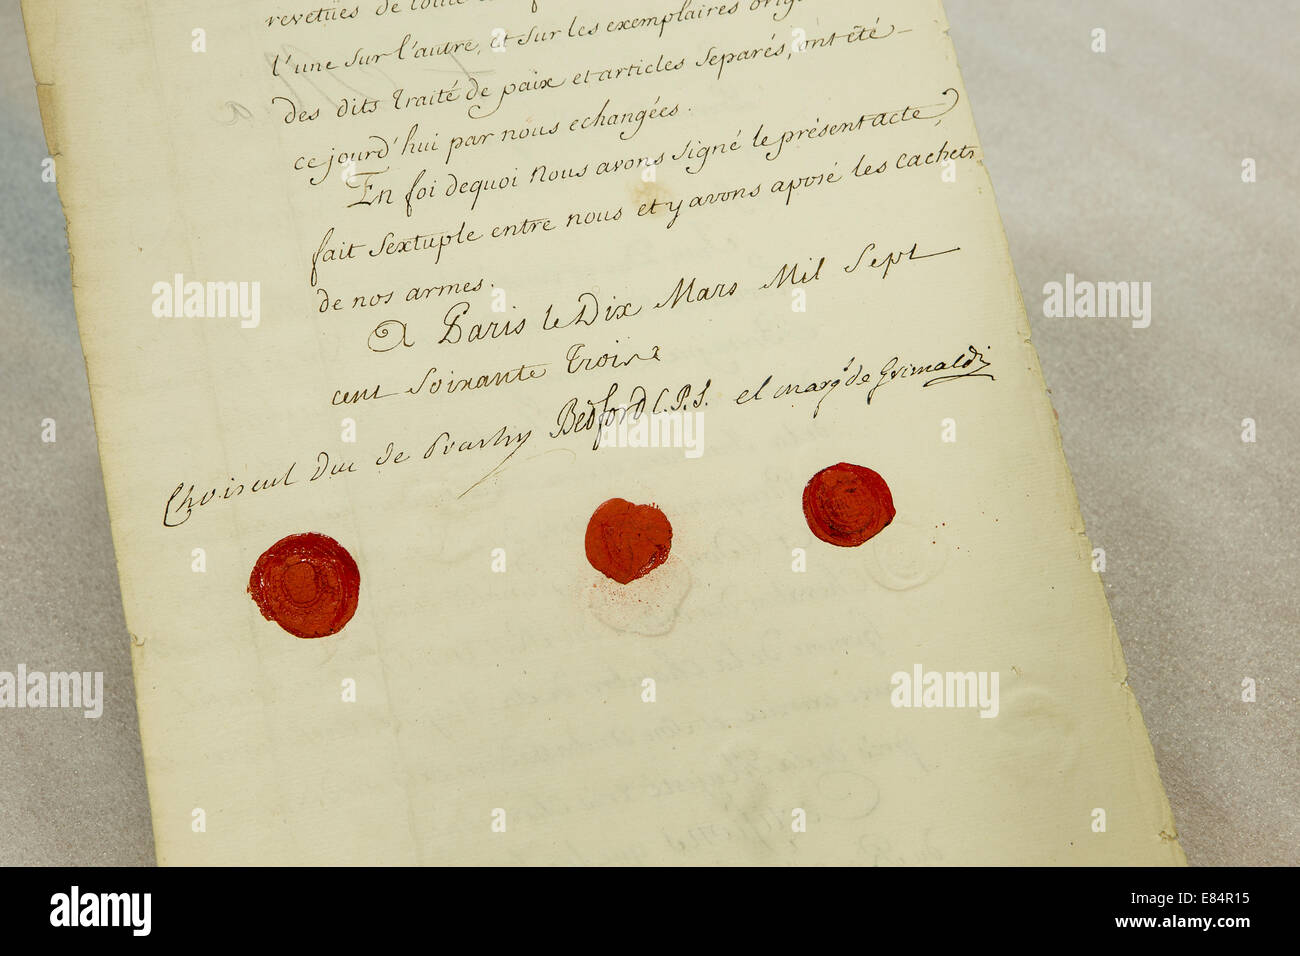 revetües de toute
l'une sur l'autre, et sur les exemplaires
des dits Traité de paix et articles separés, ont été
ce jourd'hui par nous echangées.
En foi dequoi nous avons signé le présent acte,
fait sextuple entre nous et y avons aposé les cachets
de nos armes.
A Paris le Dix Mars Mil Sept
cent Soixante Trois
Choiseul Duc de Praslin Bedford C.P.S. el marqs de Grimaldi
alamy
alamy stock photo
E84R15
www.alamy.com